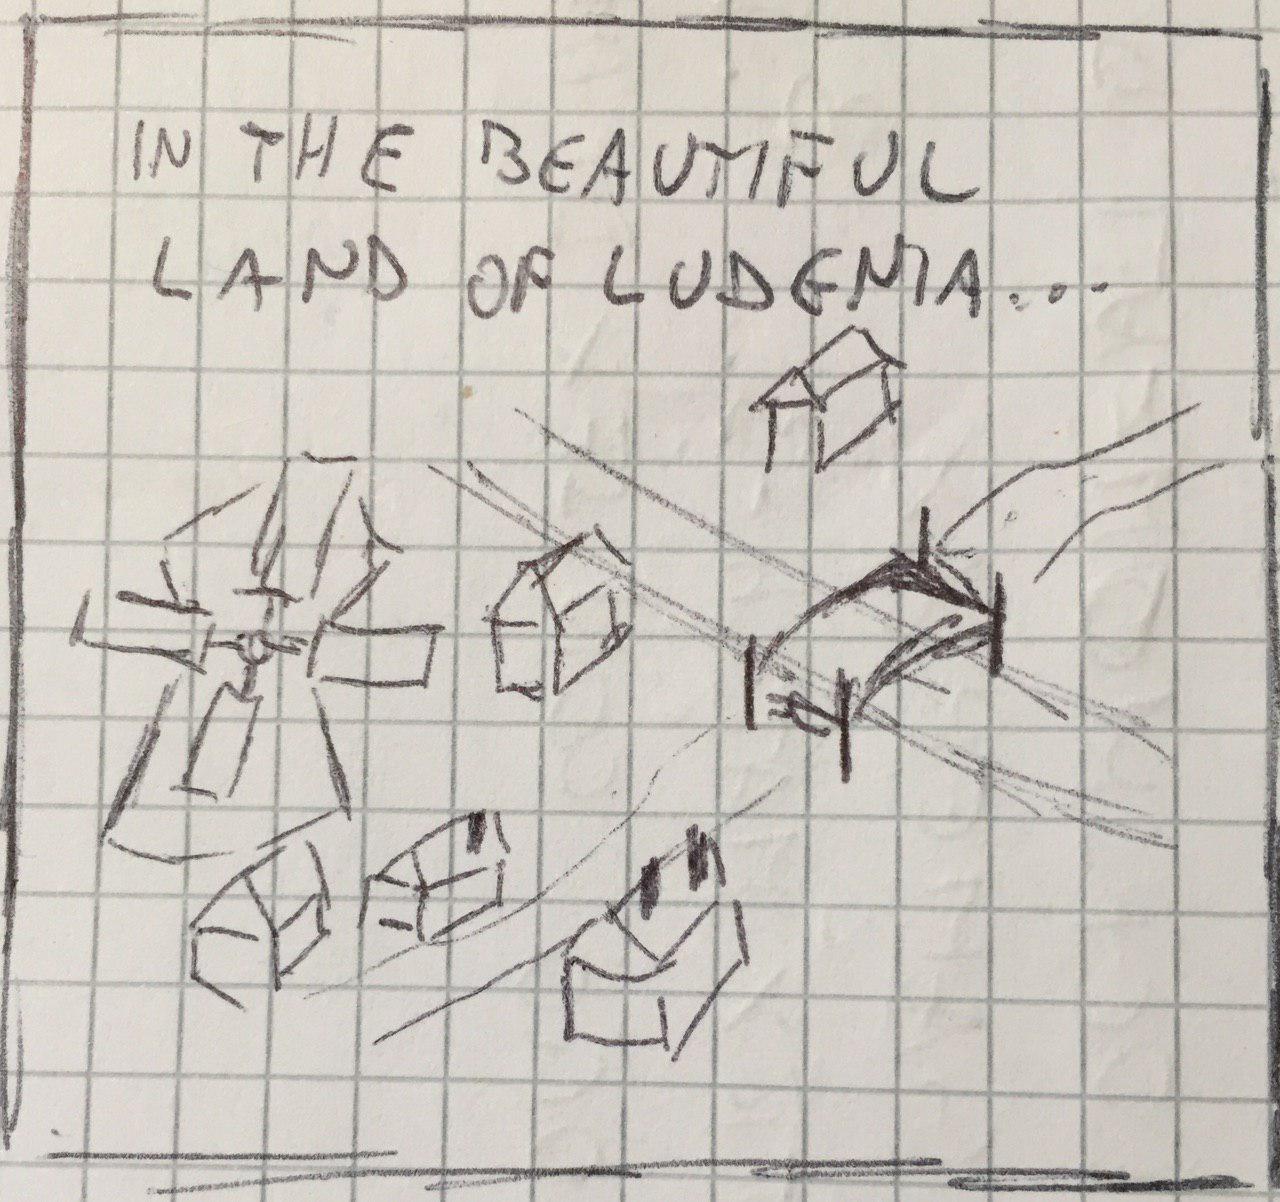 IN THE BEAUTIFUL
LAND OF LUDENIA...